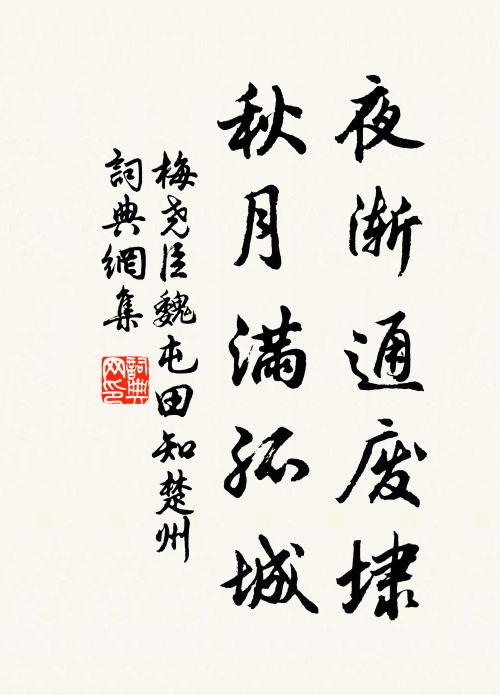 夜渐通废埭
秋月满孤城
梅尧臣魏屯田知楚州
詞典網集
詞典网印